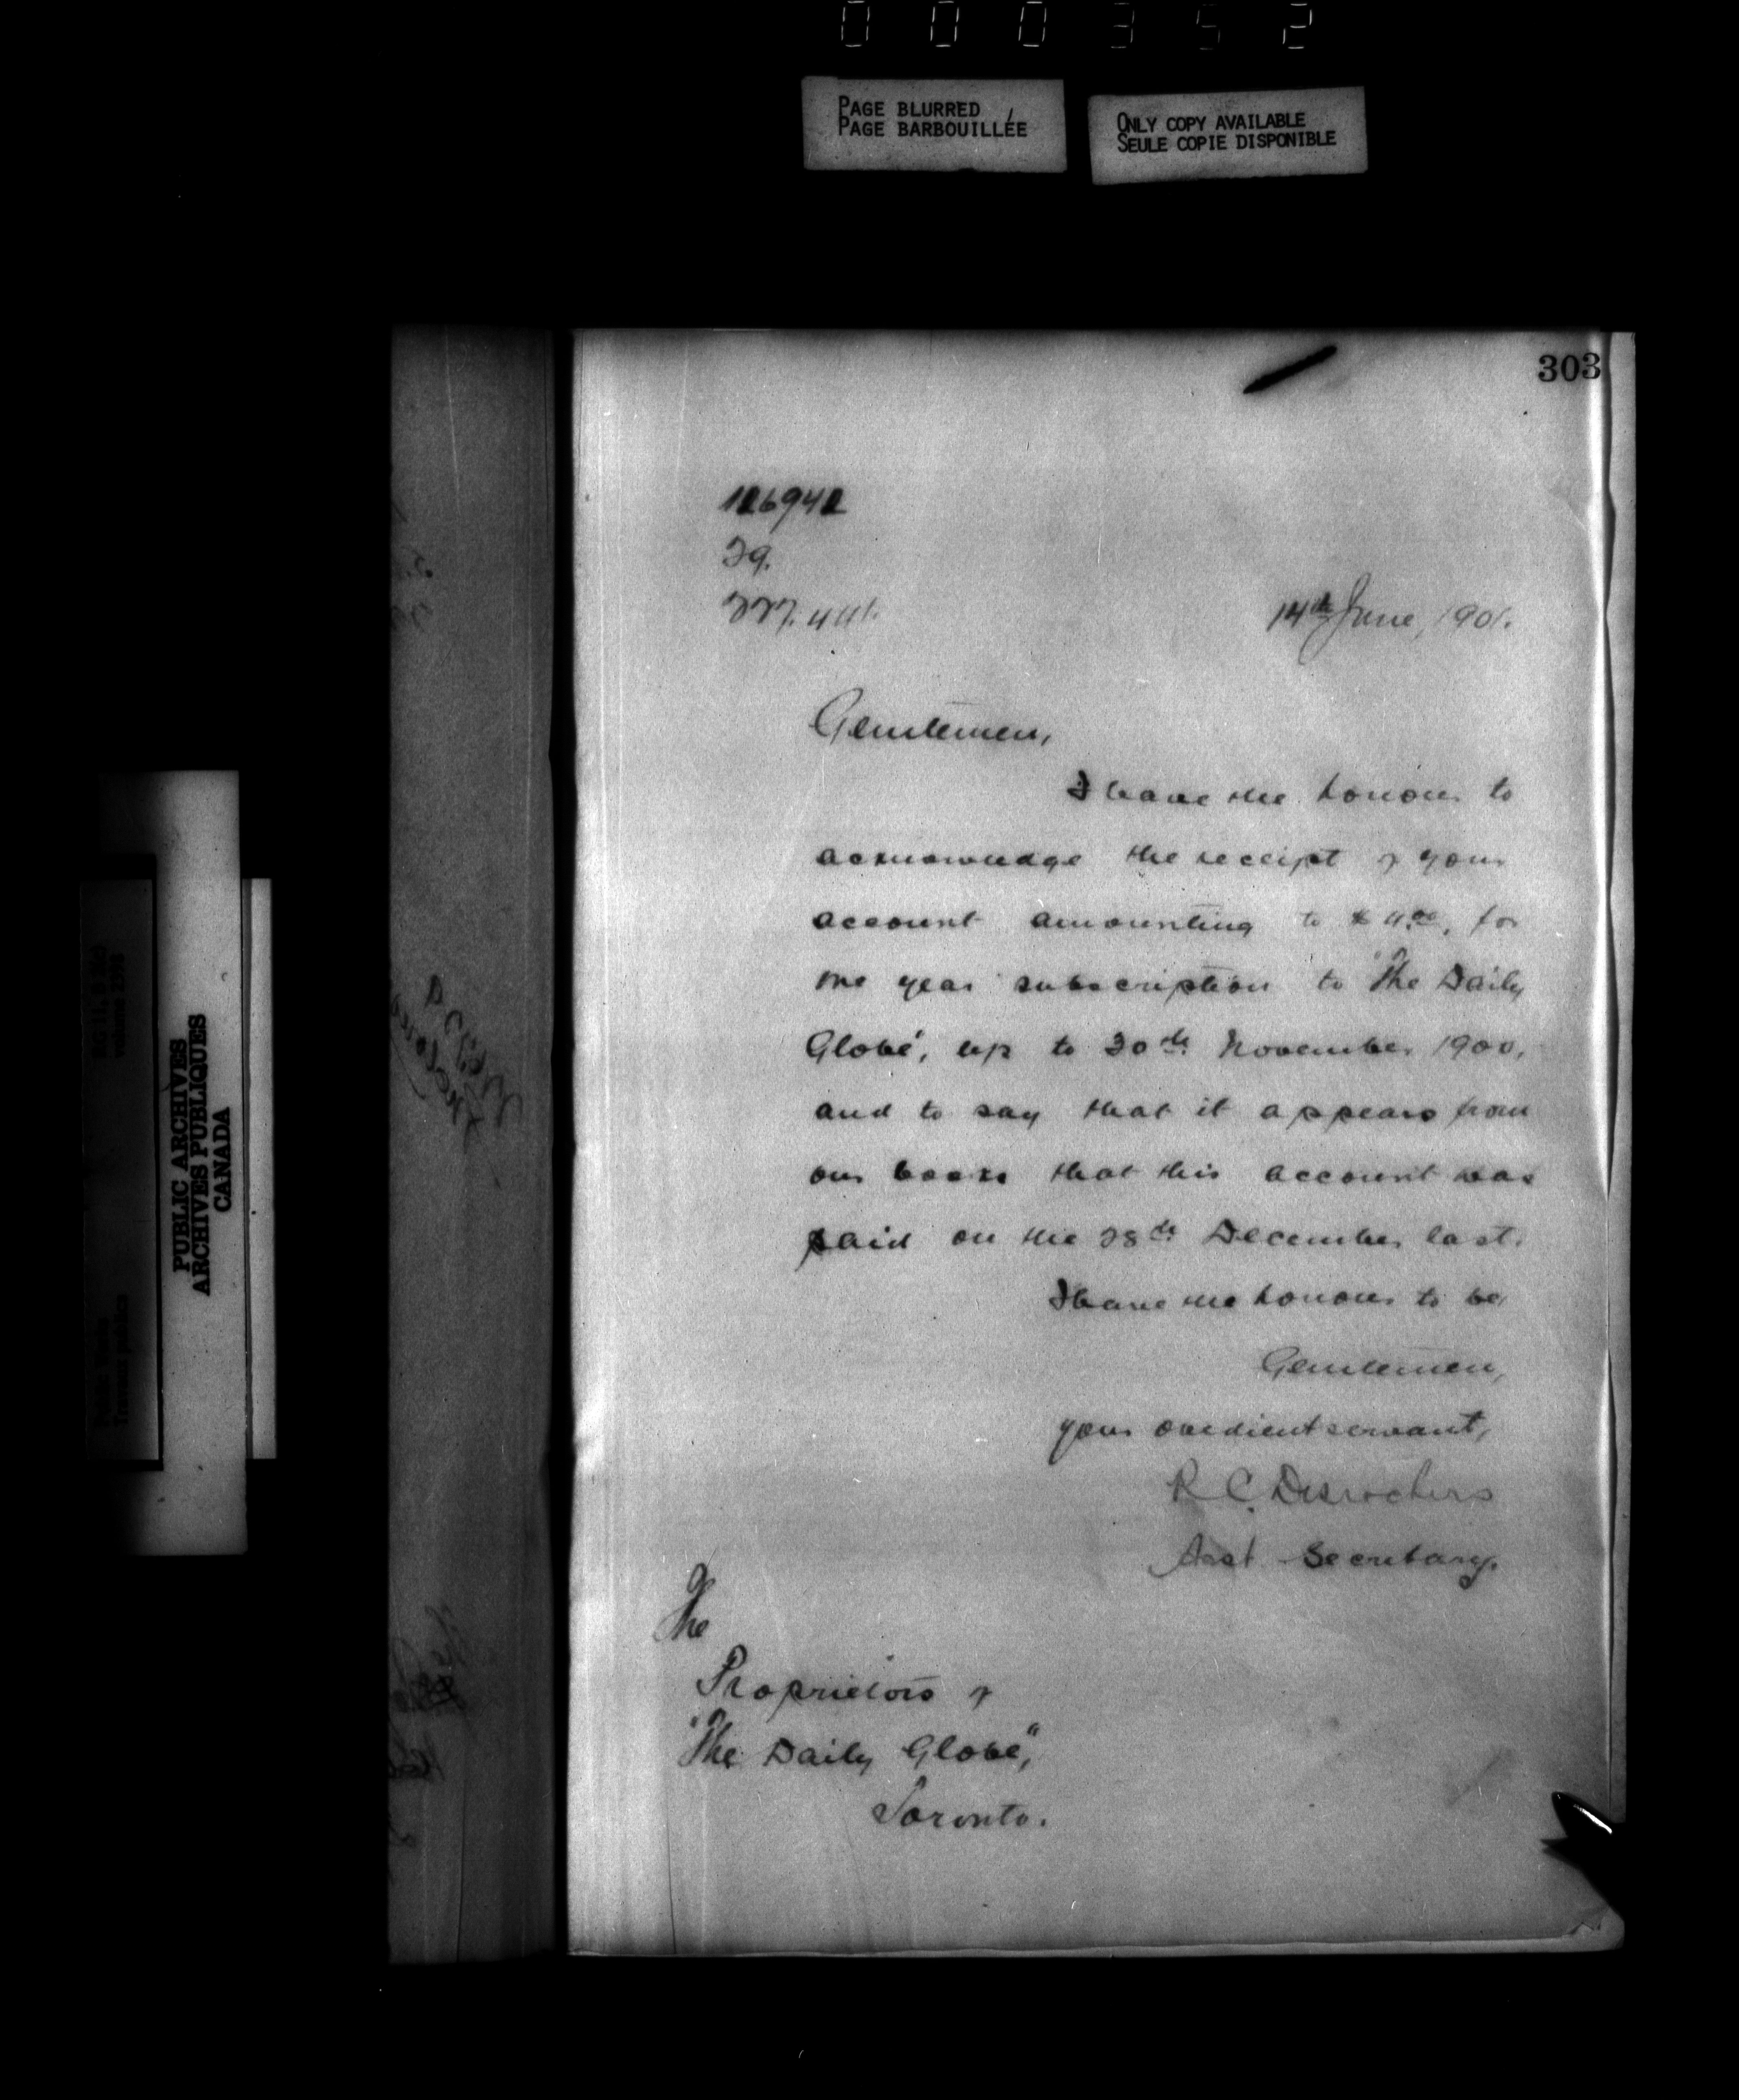 000352
PAGE BLURRED
PAGE BARBOUILLÉE
ONLY COPY AVAILABLE
SEULE COPIE DISPONIBLE
303
126942
29.
227.441.
14th June, 1901.
Gentlemen,
I have the honour to
acknowledge the receipt of your
account amounting to $4.00, for
one year subscription to "The Daily
Globe", up to 30th November 1900,
and to say that it appears from
our books that this account was
paid on the 28th December last.
I have the honour to be
Gentlemen,
your obedient servant,
R C. Desrochers
Asst Secretary.
The
Proprietors of
"The Daily Globe",
Toronto.
PUBLIC ARCHIVES
ARCHIVES PUBLIQUES
CANADA